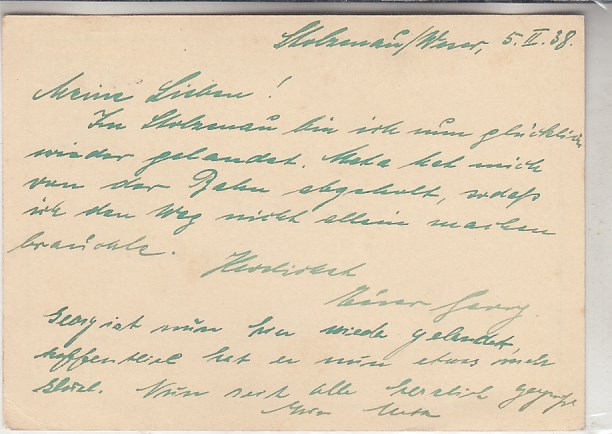 Stolzenau/Weser, 5.II.38.
Meine Lieben!
In Stolzenau bin ich nun glücklich
wieder gelandet. Meta hat mich
von der Bahn abgeholt, sodaß
ich den Weg nicht allein machen
brauchte.
Herzlichst
Euer Georg.
Georg ist nun hier wieder gelandet,
hoffentlich hat er nun etwas mehr
Glück. Nun seid alle herzlich gegrüßt
Meta